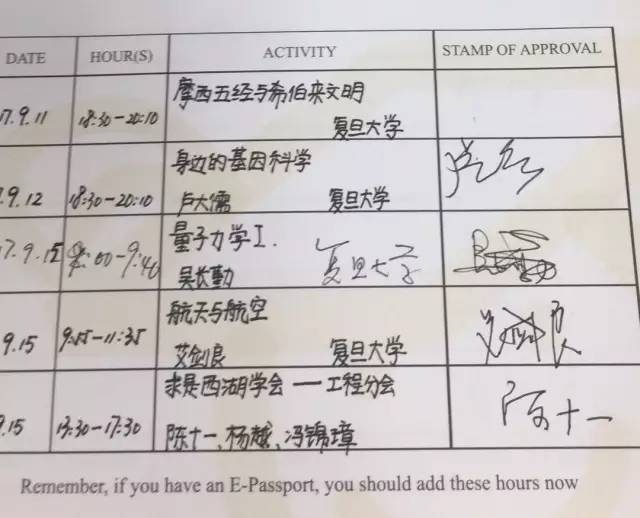 DATE HOUR(S) ACTIVITY STAMP OF APPROVAL
摩西五经与希伯来文明
7.9.11 18:30-20:10 复旦大学
身边的基因科学
.9.12 18:30-20:10 卢大儒 复旦大学
量子力学I.
7.9.15 8:00-9:40 吴长勤 复旦大学
航天与航空
9.15 9:55-11:35 艾剑良 复旦大学
求是西湖学会——工程分会
.15 13:30-17:30 陈十一、杨越、冯锦璋 陈十一
Remember, if you have an E-Passport, you should add these hours now